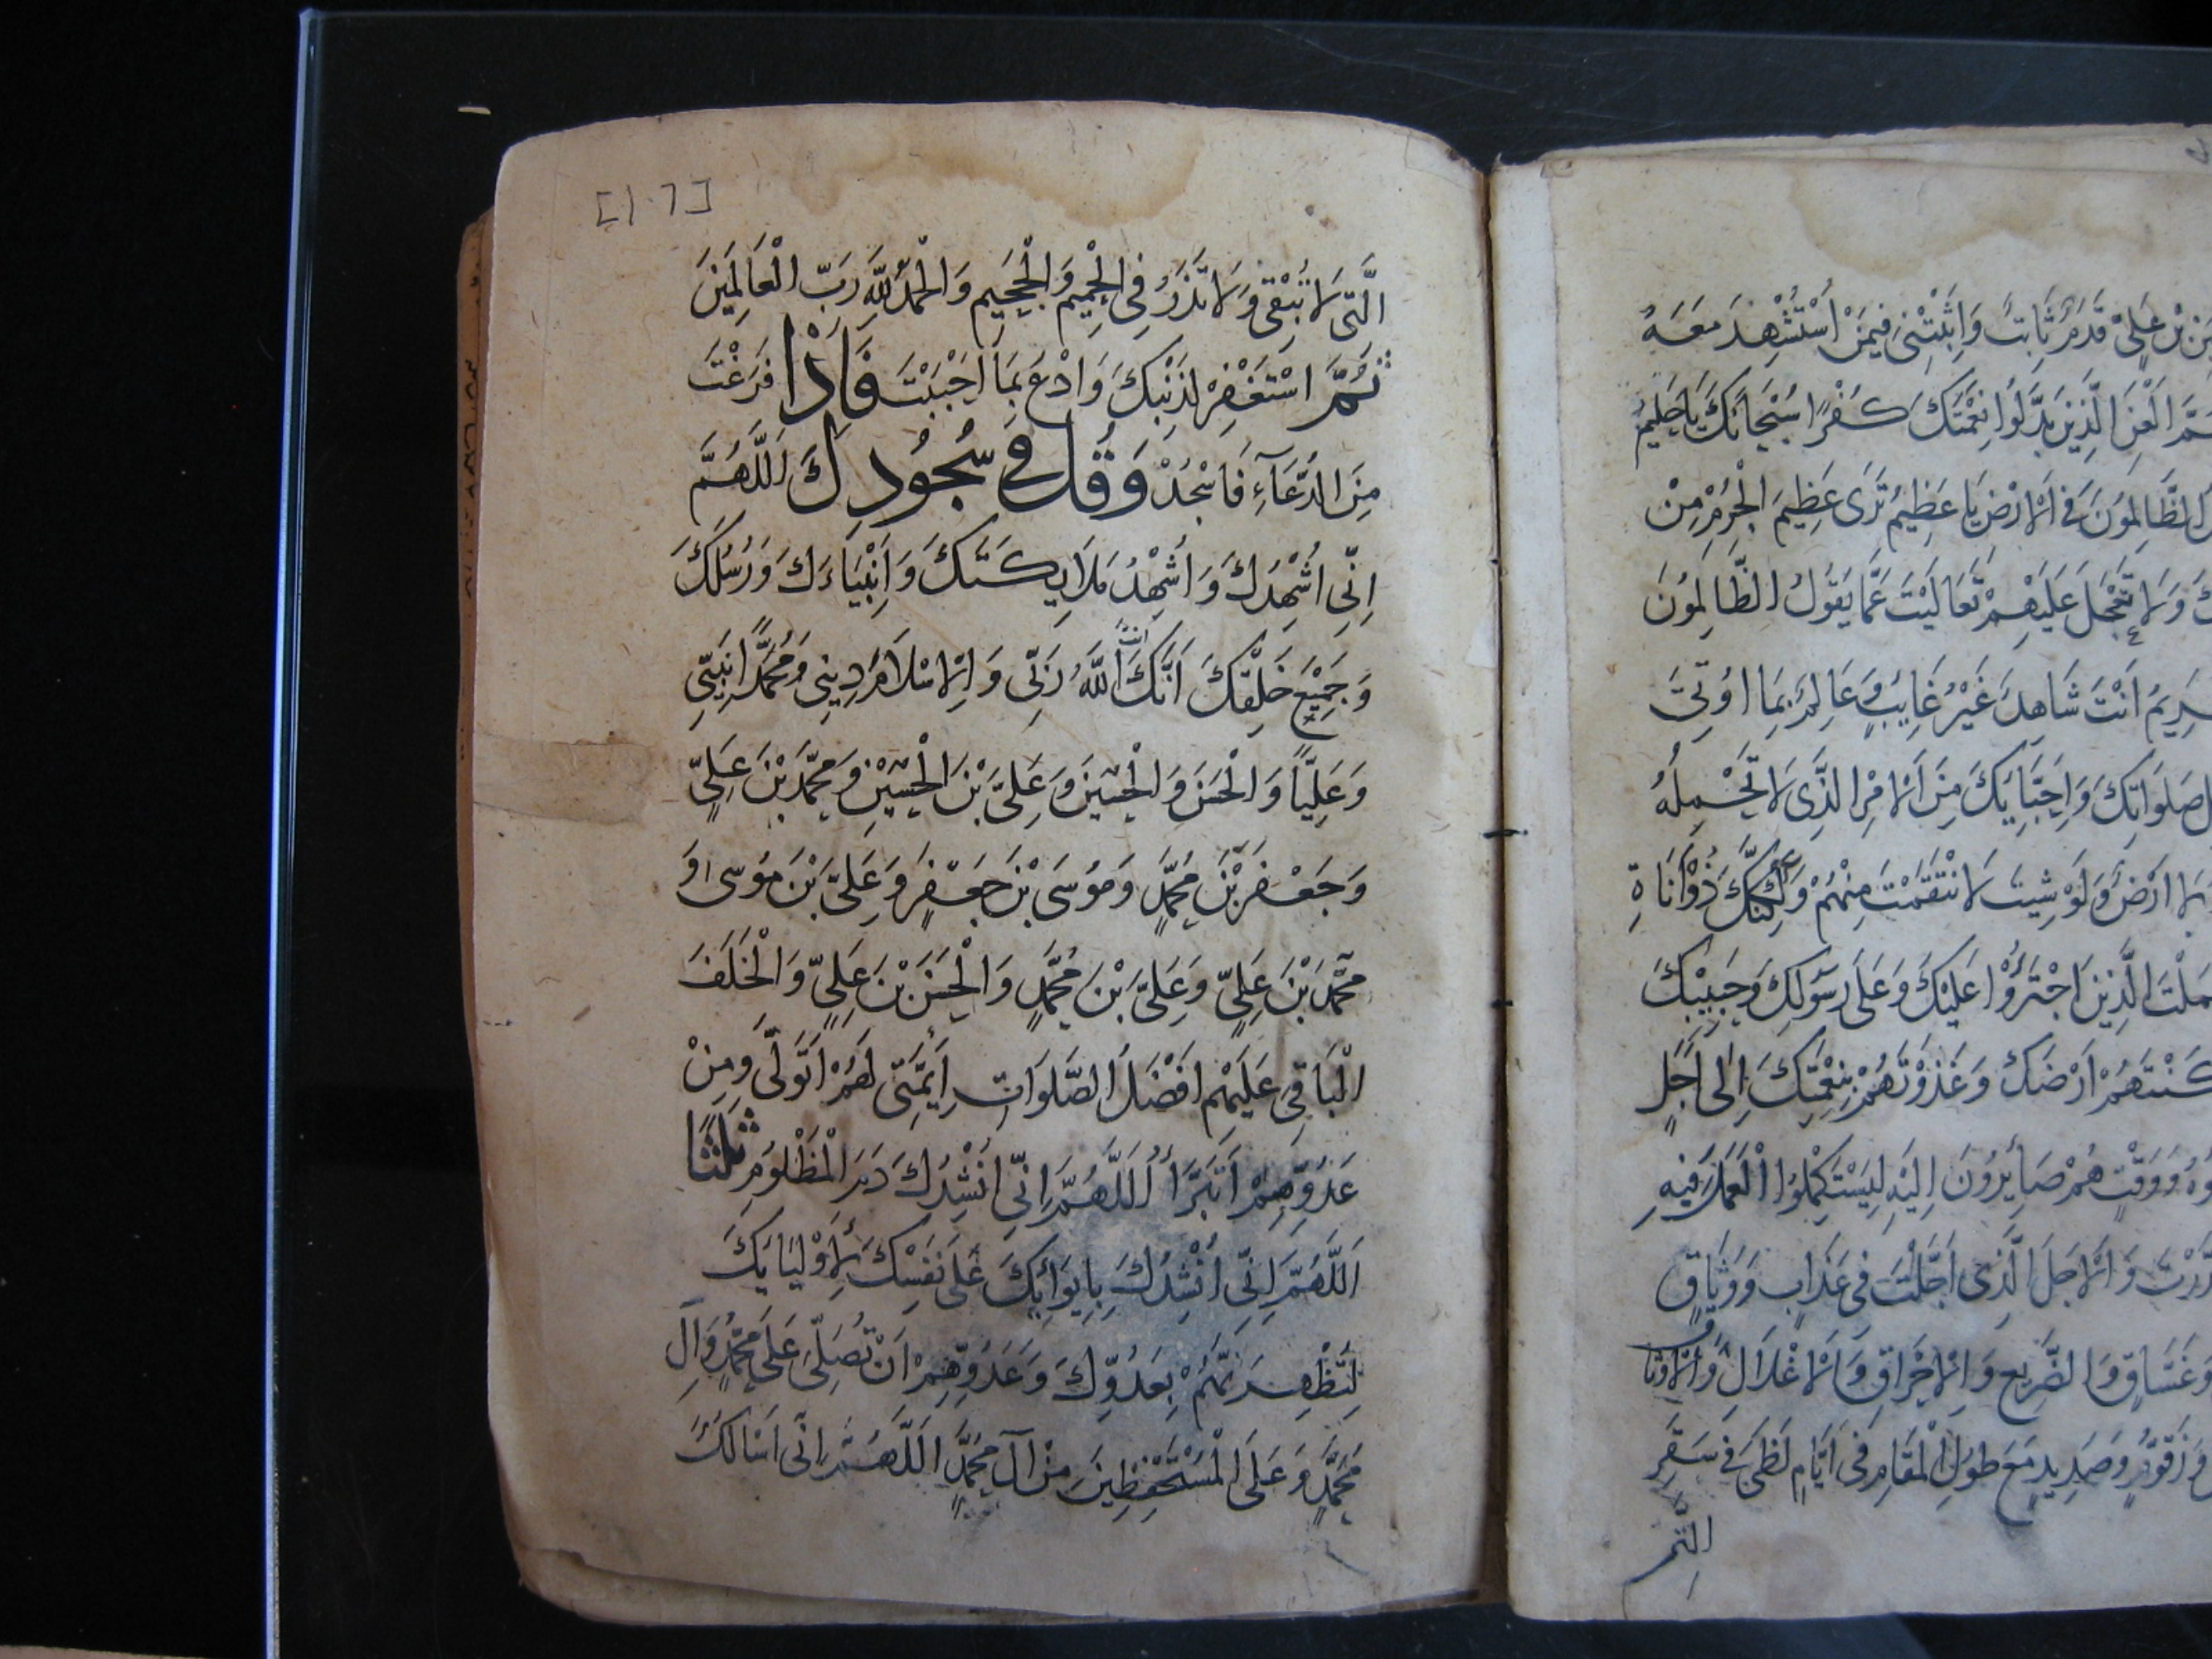 بْنِ عَلِيٍّ قَدَمَ ثَابِتٍ وَاثْبِتْنِي فِيمَنْ اُسْتُشْهِدَ مَعَهُ
الْعَنِ الَّذِينَ بَدَّلُوا نِعْمَتَكَ كُفْرًا سُبْحَانَكَ يَا حَلِيمُ
الظَّالِمُونَ فِي الْاَرْضِ يَا عَظِيمُ تَرَى عَظِيمَ الْجُرْمِ مِنْ
وَلَا تَعْجَلْ عَلَيْهِمْ تَعَالَيْتَ عَمَّا يَقُولُ الظَّالِمُونَ
اَنْتَ شَاهِدٌ غَيْرُ غَايِبٍ وَعَالِمٌ بِمَا اُوتِيَ
صَلَوَاتِكَ وَاَحِبَّايِكَ مِنَ الْاَمْرِ الَّذِي لَا تَحْمِلُهُ
اَرْضٌ وَلَوْ شِيتَ لَانْتَقَمْتَ مِنْهُمْ وَلَكِنَّكَ ذُوْ اَنَاةٍ
الَّذِينَ اجْتَرَؤُا عَلَيْكَ وَعَلَى رَسُولِكَ وَحَبِيْبِكَ
اَرْضَكَ وَغَذَوْتَهُمْ بِنِعْمَتِكَ اِلَى اَجَلٍ
وَوَقْتٍ هُمْ صَايِرُونَ اِلَيْهِ لِيَسْتَكْمِلُوا الْعَمَلَ فِيهِ
وَالْاَجَلَ الَّذِي اَجَّلْتَ فِي عَذَابٍ وَوَثَاقٍ
وَغَسَّاقٍ وَالضَّرِيعِ وَالْاِحْرَاقِ وَالْاَغْلَالِ وَالْاَوْثَاقِ
زَقُّومٍ وَصَدِيدٍ مَعَ طُولِ الْمَقَامِ فِي اَيَّامِ لَظَى فِي سَقَرِ
الَّتِي
[١٠٦]
الَّتِي لَا تُبْقِي وَلَا تَذَرُ فِي الْحَمِيمِ وَالْجَحِيمِ وَالْحَمْدُ لِلَّهِ رَبِّ الْعَالَمِينَ
ثُمَّ اسْتَغْفِرْ لِذَنْبِكَ وَادْعُ بِمَا اَحْبَبْتَ فَاِذَا فَرَغْتَ
مِنَ الدُّعَآءِ فَاسْجُدْ وَقُلْ فِي سُجُودِكَ اَللَّهُمَّ
اِنِّي اُشْهِدُكَ وَاُشْهِدُ مَلَايِكَتَكَ وَاَنْبِيَاءَكَ وَرُسُلَكَ
وَجَمِيْعَ خَلْقِكَ اَنَّكَ اَنْتَ اللَّهُ رَبِّي وَالْاِسْلَامَ دِينِي وَمُحَمَّدًا نَبِيِّي
وَعَلِيًّا وَالْحَسَنَ وَالْحُسَيْنَ وَعَلِيَّ بْنَ الْحُسَيْنِ وَمُحَمَّدَ بْنَ عَلِيٍّ
وَجَعْفَرَ بْنَ مُحَمَّدٍ وَمُوسَى بْنَ جَعْفَرٍ وَعَلِيَّ بْنَ مُوسَى وَ
مُحَمَّدَ بْنَ عَلِيٍّ وَعَلِيَّ بْنَ مُحَمَّدٍ وَالْحَسَنَ بْنَ عَلِيٍّ وَالْخَلَفَ
الْبَاقِي عَلَيْهِمْ اَفْضَلُ الصَّلَوَاتِ اَيِمَّتِي لَهُمْ اَتَوَلَّى وَمِنْ
عَدُوِّهِمْ اَتَبَرَّأُ اَللَّهُمَّ اِنِّي اَنْشُدُكَ دَمَ الْمَظْلُومِ ثَلَثًا
اَللَّهُمَّ اِنِّي اَنْشُدُكَ بِاِيوَائِكَ عَلَى نَفْسِكَ لِاَوْلِيَايِكَ
لِتُظْهِرَنَّهُمْ بِعَدُوِّكَ وَعَدُوِّهِمْ اَنْ تُصَلِّيَ عَلَى مُحَمَّدٍ وَآلِ
مُحَمَّدٍ وَعَلَى الْمُسْتَحْفَظِينَ مِنْ آلِ مُحَمَّدٍ اَللَّهُمَّ اِنِّي اَسْاَلُكَ